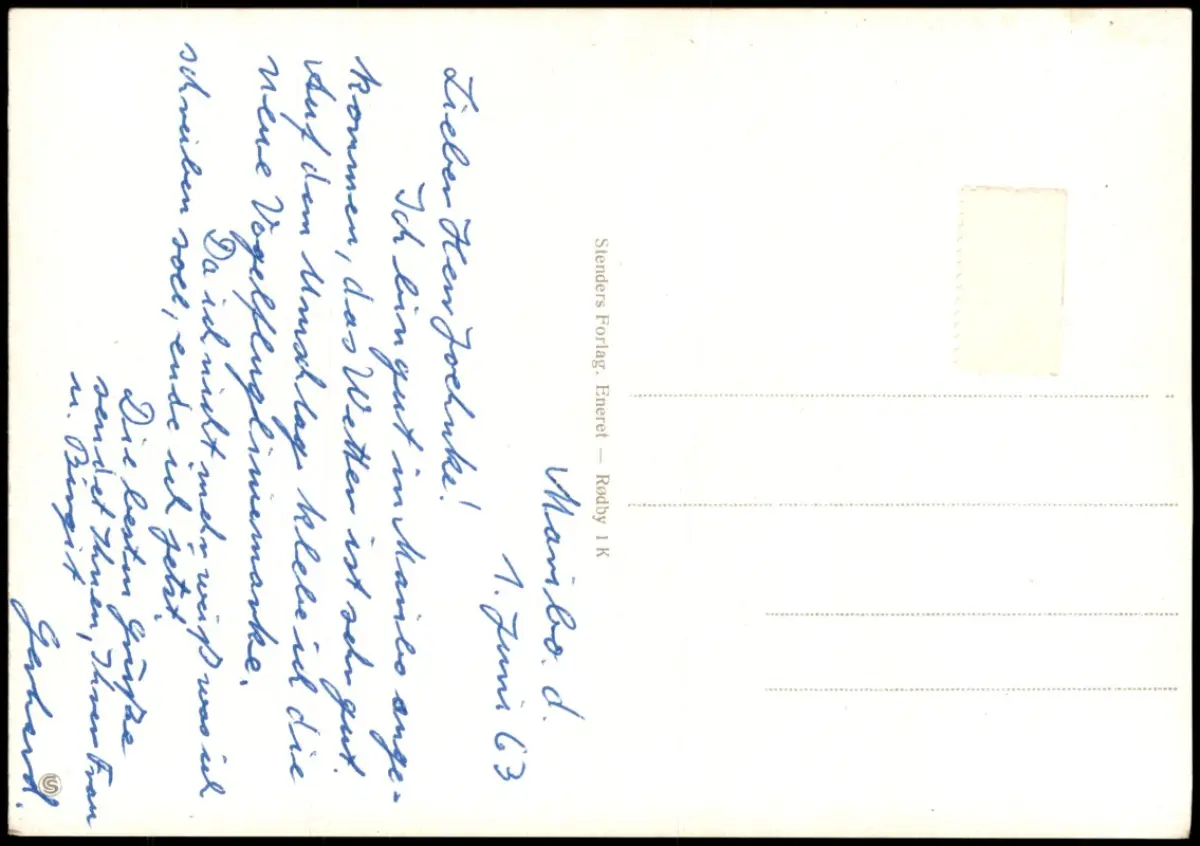 Maribo. d.
1. Juni 63
Lieber Herr Joehnke!
Ich bin gut in Maribo ange-
kommen, das Wetter ist sehr gut.
Auf dem Umschlag klebe ich die
neue Vogelfluglinienmarke.
Da ich nicht mehr weiß was ich
schreiben soll, ende ich jetzt.
Die besten Grüße
sendet Ihnen, Ihrer Frau
u. Birgit
Gerhard.
Stenders Forlag. Eneret — Rødby 1 K